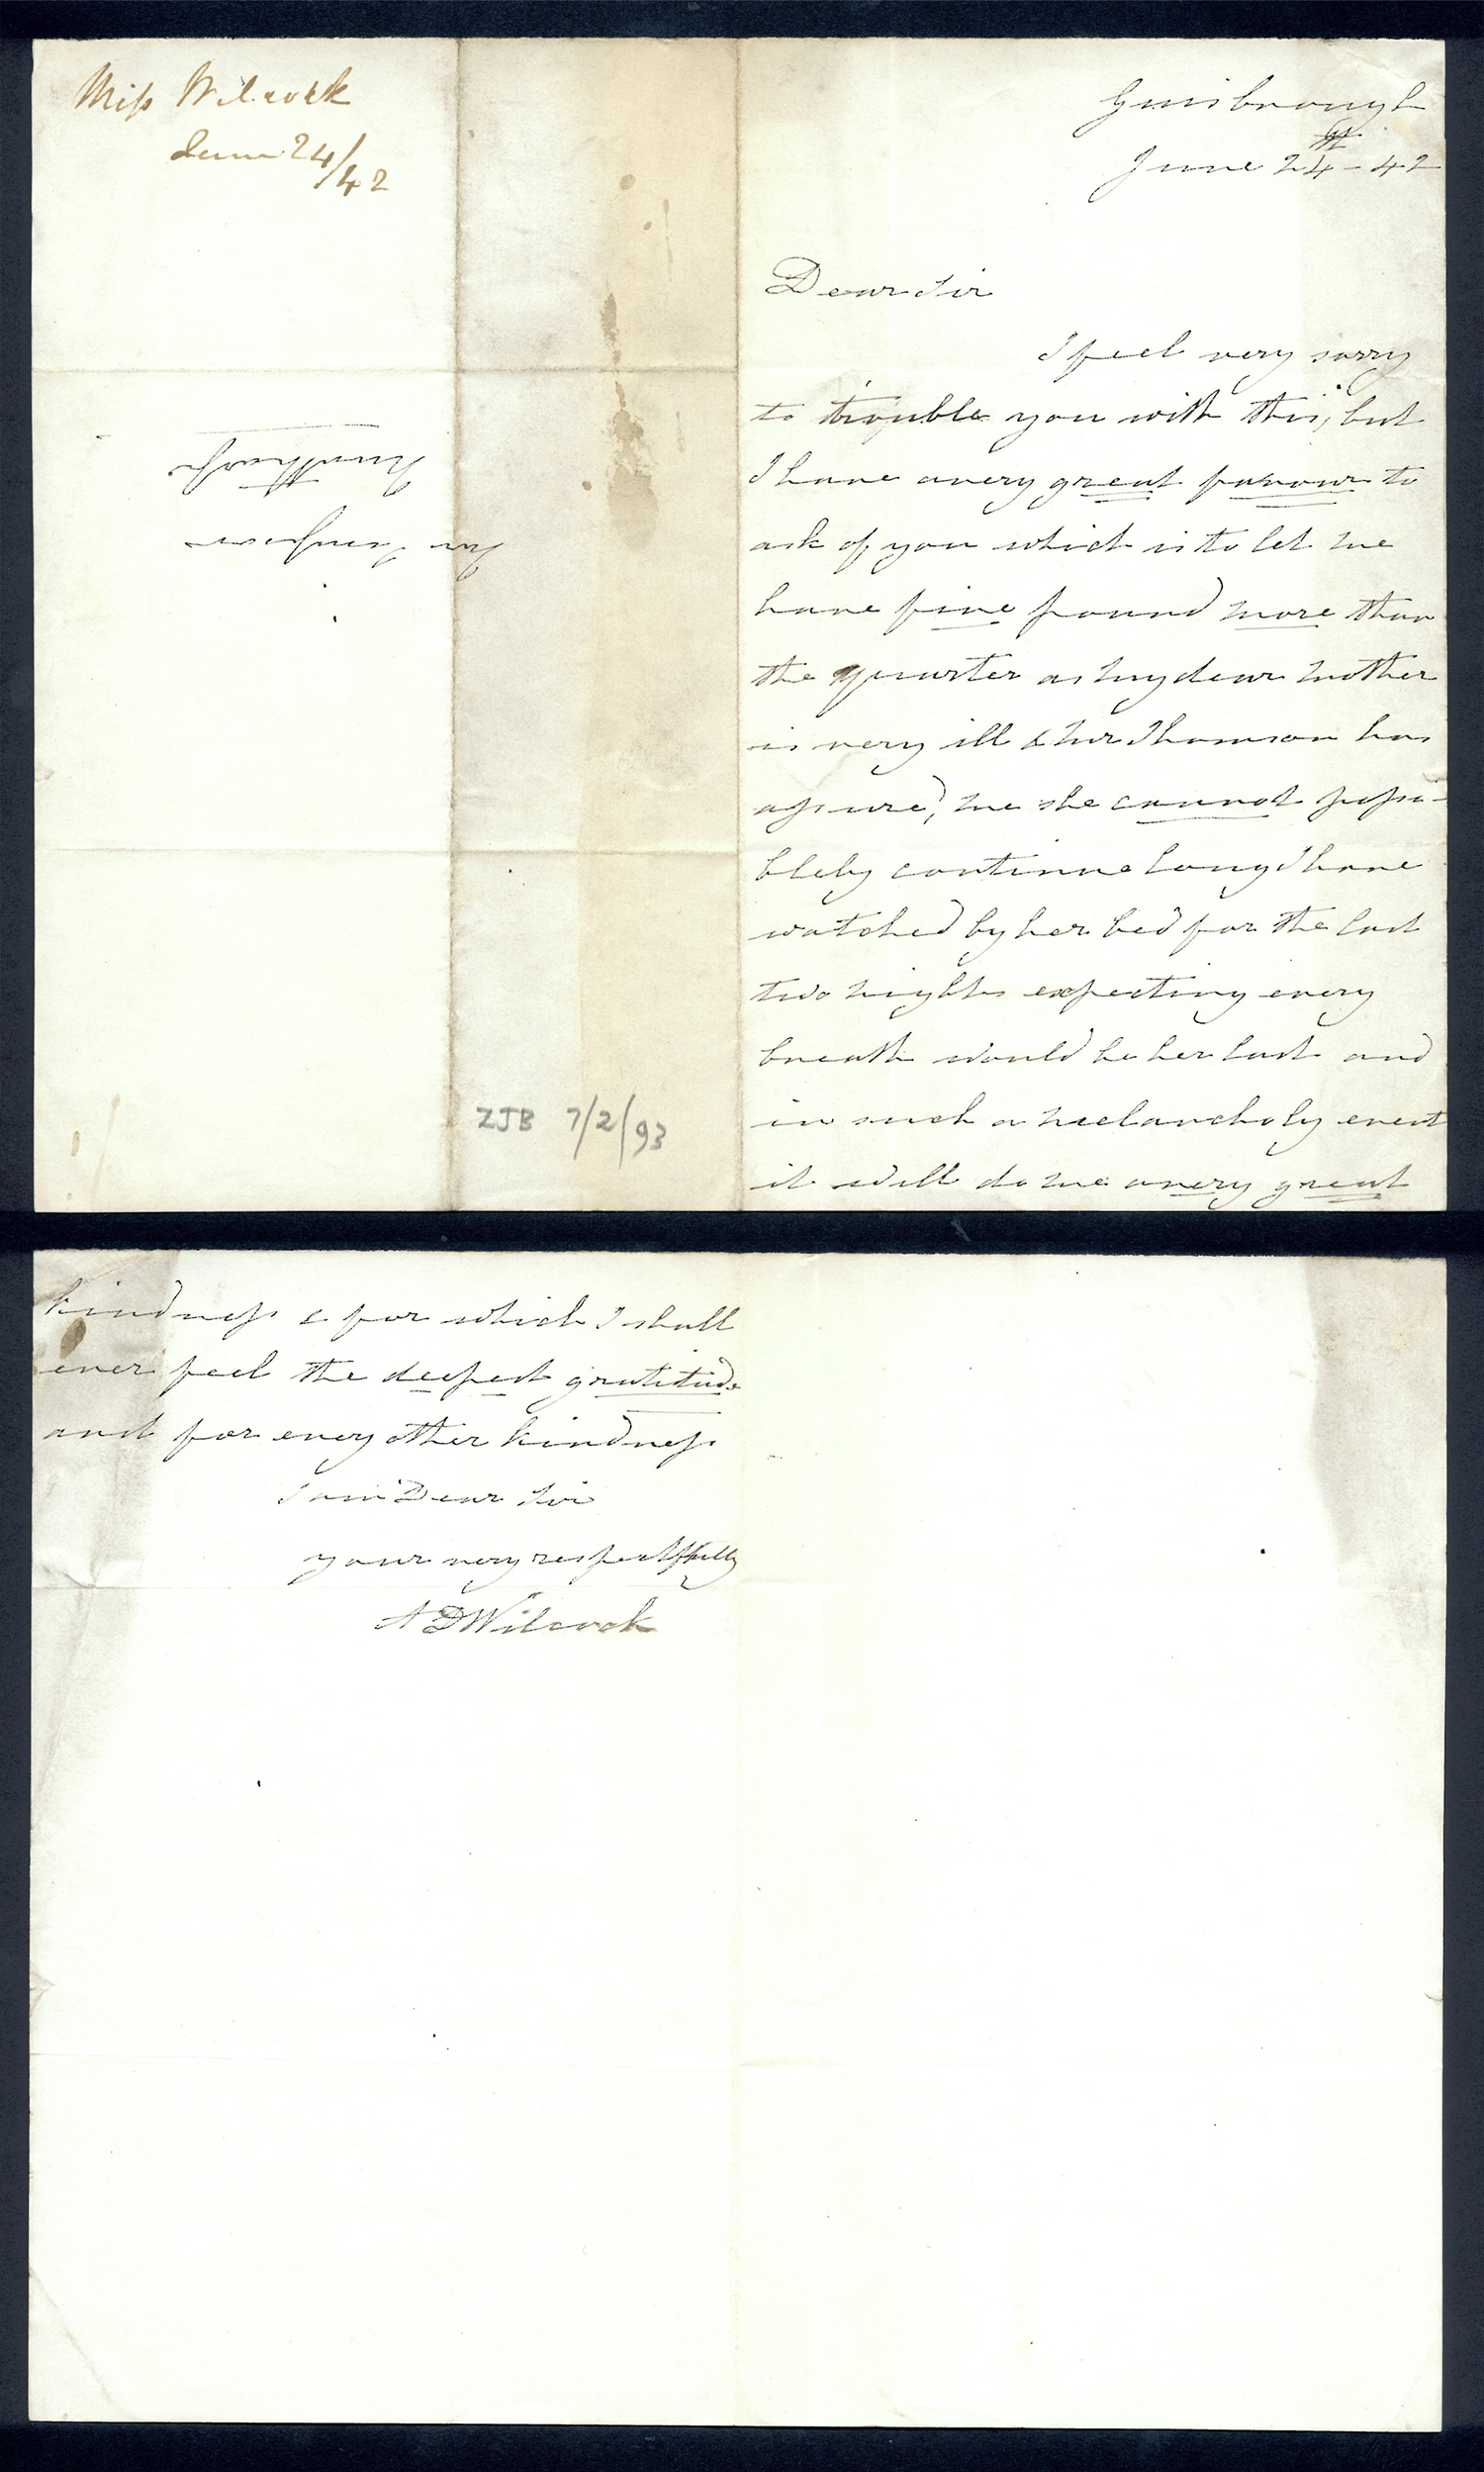 Miss Wilcock
June 24/42
Mr Simpson
Nunthorpe
ZJB 7/2/93
Guisbrough
June 24th - 42
Dear Sir
I feel very sorry
to trouble you with this, but
I have a very great favour to
ask of you which is to let me
have five pound more than
the quarter as my dear Mother
is very ill & Mr Thomson has
assured, me she cannot possi-
blely continue long I have
watched by her bed for the last
two nights expecting every
breath would be her last and
in such a melancholy event
it will do me a very great
kindness & for which I shall
ever feel the deepest gratitude
and for every other kindness
I am Dear Sir
your very respectfully
A D Wilcock